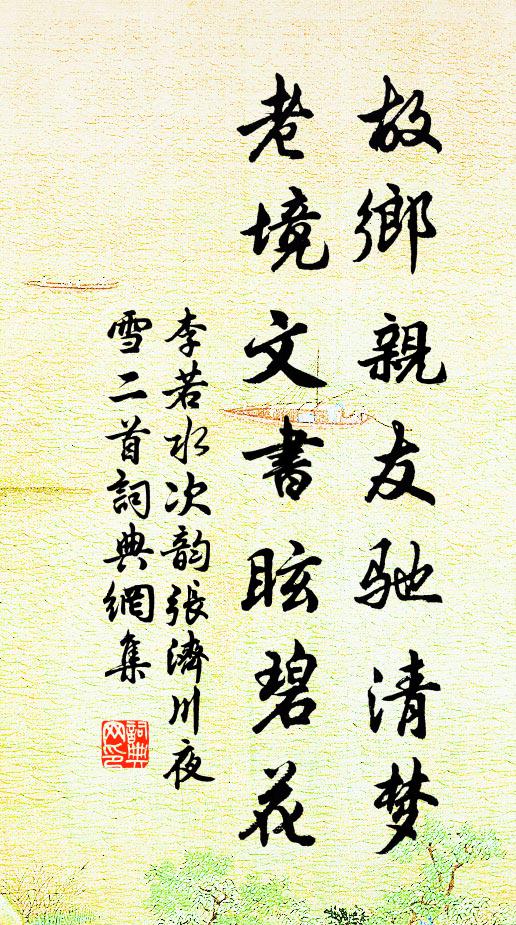 故鄉親友馳清梦
老境文書眩碧花
李若水次韵張濟川夜
雪二首詞典網集
詞典
网印